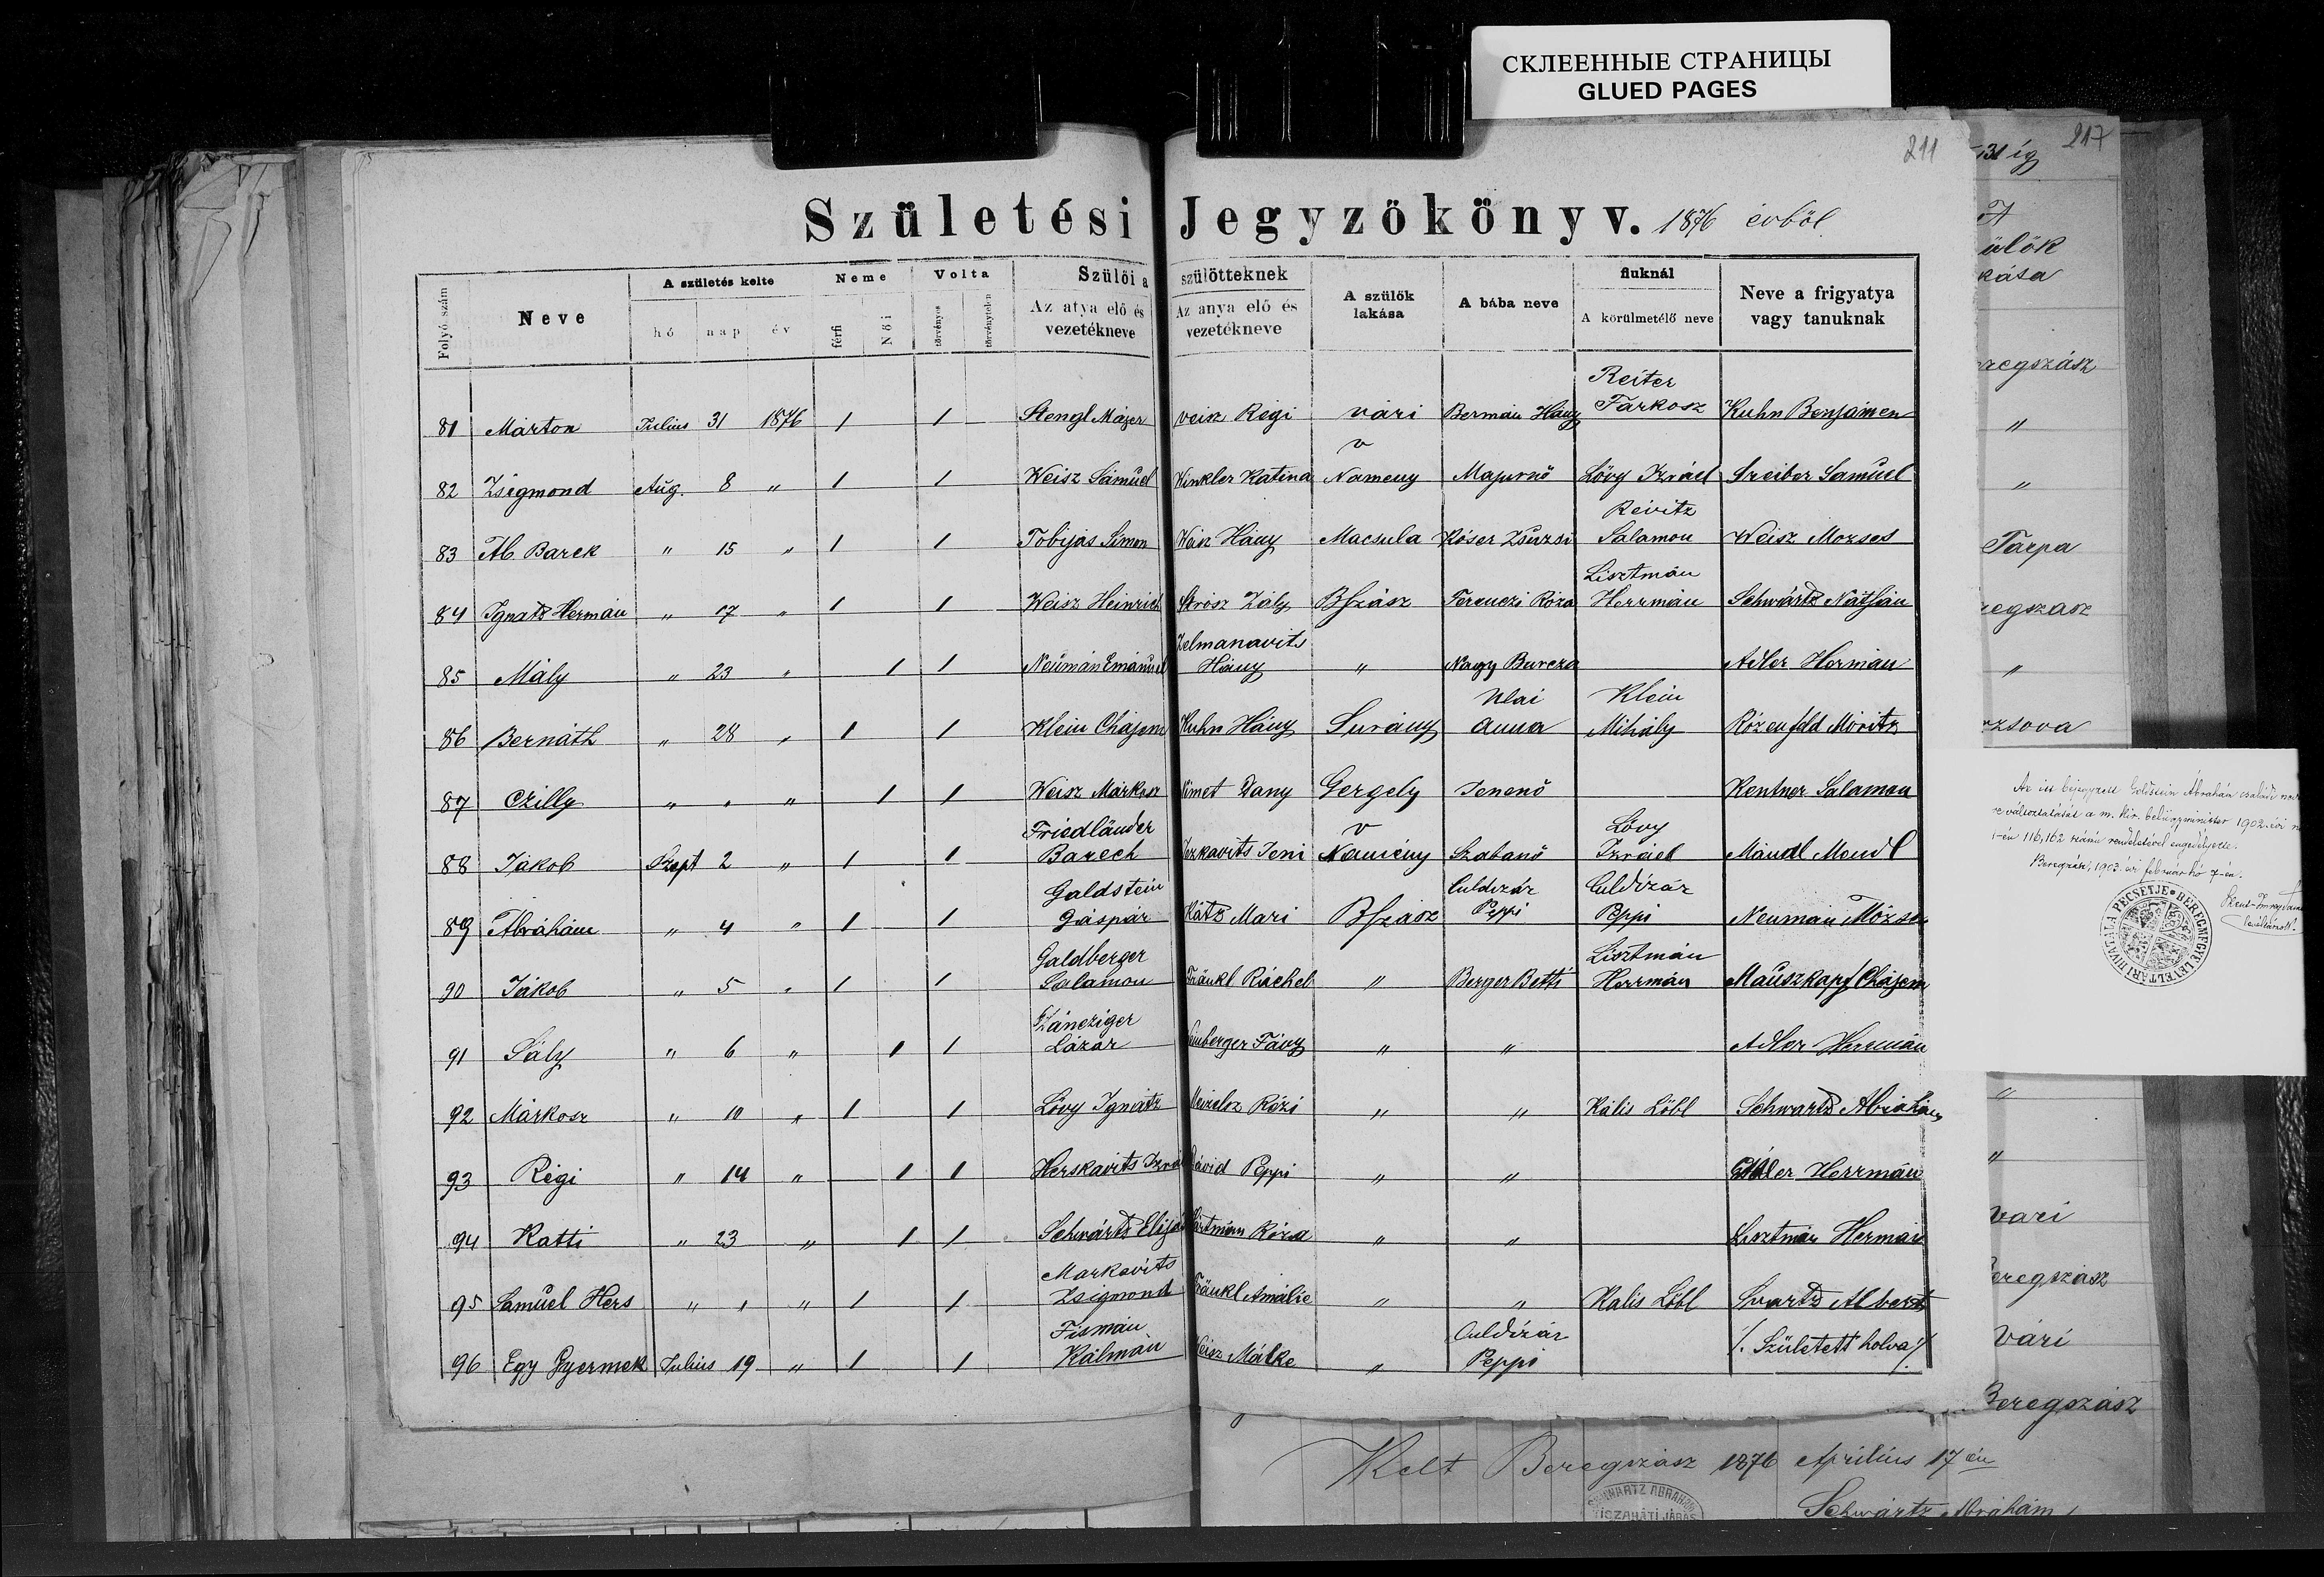 СКЛЕЕННЫЕ СТРАНИЦЫ
GLUED PAGES
211
217
Születési Jegyzökönyv. 1876 évböl
Folyó szám | Neve | A születés kelte | Neme | Volta | Szülői a szülötteknek | A szülök lakása | A bába neve | fiuknál | Neve a frigyatya vagy tanuknak
hó | nap | év | férfi | Női | törvényes | törvénytelen | Az atya elő és vezetékneve | Az anya elő és vezetékneve | A körülmetélő neve
81 Márton Julius 31 1876 1 1 Stengl Májer veisz Régi vári Bermán Hány Reiter Farkosz Kuhn Benjámen
82 Zsigmond Aug. 8 " 1 1 Weisz Sámuel Winkler Katina v Nameny Majernö Lövy Izráel Sreiber Samuel
83 Ab. Barek " 15 " 1 1 Tobijas Simon Weisz Hány Macsula Kóser Zsuzsi Reivitz Salamon Weisz Mozses
84 Ignatz Hermán " 17 " 1 1 Weisz Heinrich Strósz Zály Bszász Ferenczi Róza Lisztmán Herrmán Schwártz Náthán
85 Mály " 23 " 1 1 Neumán Emánuel Zelmanavits Hány " Nagy Burcza Adler Hermán
86 Bernáth " 28 " 1 1 Klein Chájem Kuhn Hány Surány Ulai Anna Klein Mihály Rózenfeld Móritz
87 Czilly " " " 1 1 Weisz Márkosz Német Dany Gergely Jenenő Kentner Salamon
88 Jakob Szept 2 " 1 1 Friedländer Barech Iczkavits Jeni v Namény Szabanő Lövy Izráel Mándl Mendl
89 Ábrahám " 4 " 1 1 Galdstein Gáspár Kátz Mari Bszász Culdizár Peppi Culdizár Peppi Neumán Mózses
90 Jákob " 5 " 1 1 Galdberger Salamon Fränkl Ráchel " Berger Betti Lisztmán Herrmán Mauszkapf Chájem
91 Sály " 6 " 1 1 Száncziger Lázár Weinberger Fány " " Adler Herrmán
92 Márkosz " 10 " 1 1 Lövy Ignátz Meizelsz Rózi " " Kális Löbl Schwartz Abrahám
93 Régi " 14 " 1 1 Herskavits Izrael Dávid Peppi " " Adler Herrmán
94 Katti " 23 " 1 1 Schwártz Eliyás Hartmán Róza " " Lisztmán Hermán
95 Samuel Hers " " " 1 1 Markavits Zsigmond Fränkl Amálie " " Kalis Löbl Svartz Albert
96 Egy Gyermek Julius 19 " 1 1 Fismán Kálmán Weisz Málke " Culdizár Peppi /. Született holva ./
31 ig
ülök
kása
regszász
"
"
Tarpa
regszasz
"
zsova
"
"
vari
Beregszász
Vári
Beregszász
Az itt bejegyzett Goldstein Ábrahám családi nev
re változtatását a m. kir. belügyminister 1902. évi
-én 116,162 számú rendeletével engedélyezte.
Beregszász, 1903. évi február hó 7-én.
levéltárnok.
BEREGMEGYE LEVÉLTÁRI HIVATALA PECSÉTJE
Kelt Beregszász 1876 Április 17 én
SCHWARTZ ABRAHÁM
TISZAHÁTI JÁRÁS
Schwártz Abrahám